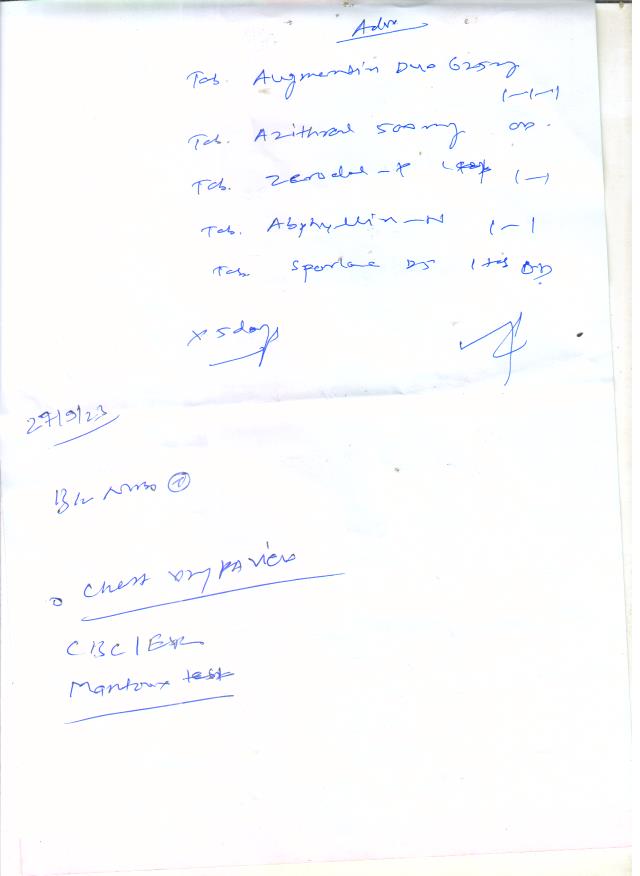 Adv
Tab. Augmentin Duo 625mg
1-1-1
Tab. Azithral 500mg OD.
Tab. Zerodol-P 1-1
Tab. Abphyllin-N 1-1
Tab. Sporlac DS 1 tab OD
x 5 days
27/9/23
B/L NVBS +
Chest Xray PA View
CBC/ESR
Mantoux test